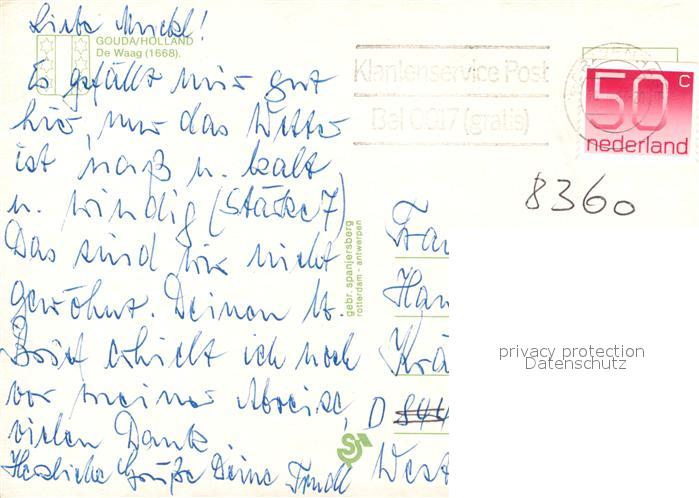 Liebe Muckl!
GOUDA/HOLLAND
De Waag (1668).
Es gefällt mir gut
hier, nur das Wetter
ist naß u. kalt
u. windig (Stärke 7)
Das sind wir nicht
gewöhnt. Deinen lb.
Brief erhielt ich noch
vor meiner Abreise,
vielen Dank.
Herzliche Grüße Deine Trudl
gebr. spanjersberg
rotterdam - antwerpen
Klantenservice Post
Bel 0017 (gratis)
50 c
nederland
8360
Frau
Han
Krä
D 844
West
privacy protection
Datenschutz